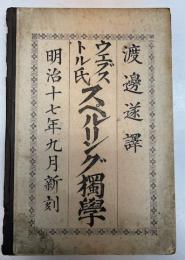 渡邊遂譯
ウエブストル氏スペルリング獨學
明治十七年九月新刻